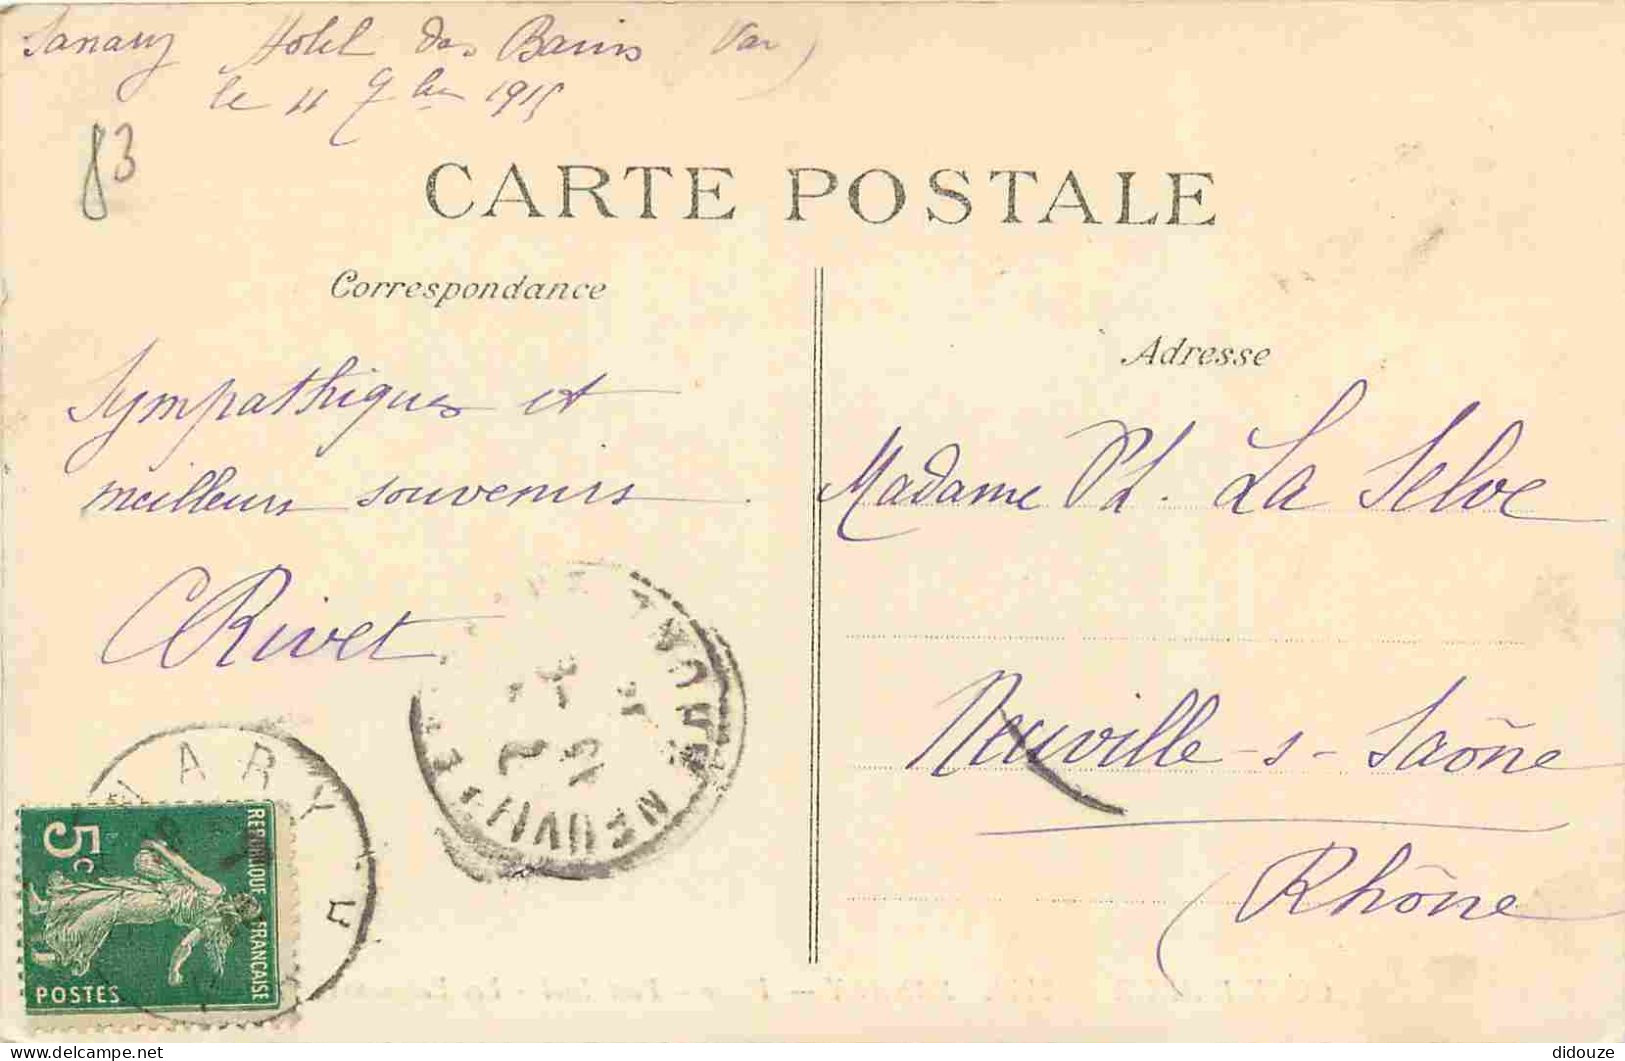 Sanary Hotel des Bains (Var)
le 11 9bre 1915
83
CARTE POSTALE
Correspondance
Adresse
Sympathiques et
meilleurs souvenirs.
CRivet
Madame Ph. La Selve
Neuville-s-Saône
Rhône
NARY
NEUVILLE
5c
REPUBLIQUE FRANÇAISE
POSTES
didouze